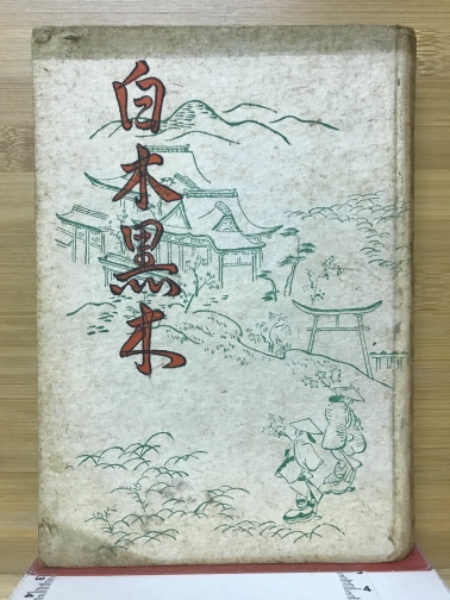 白木黒木